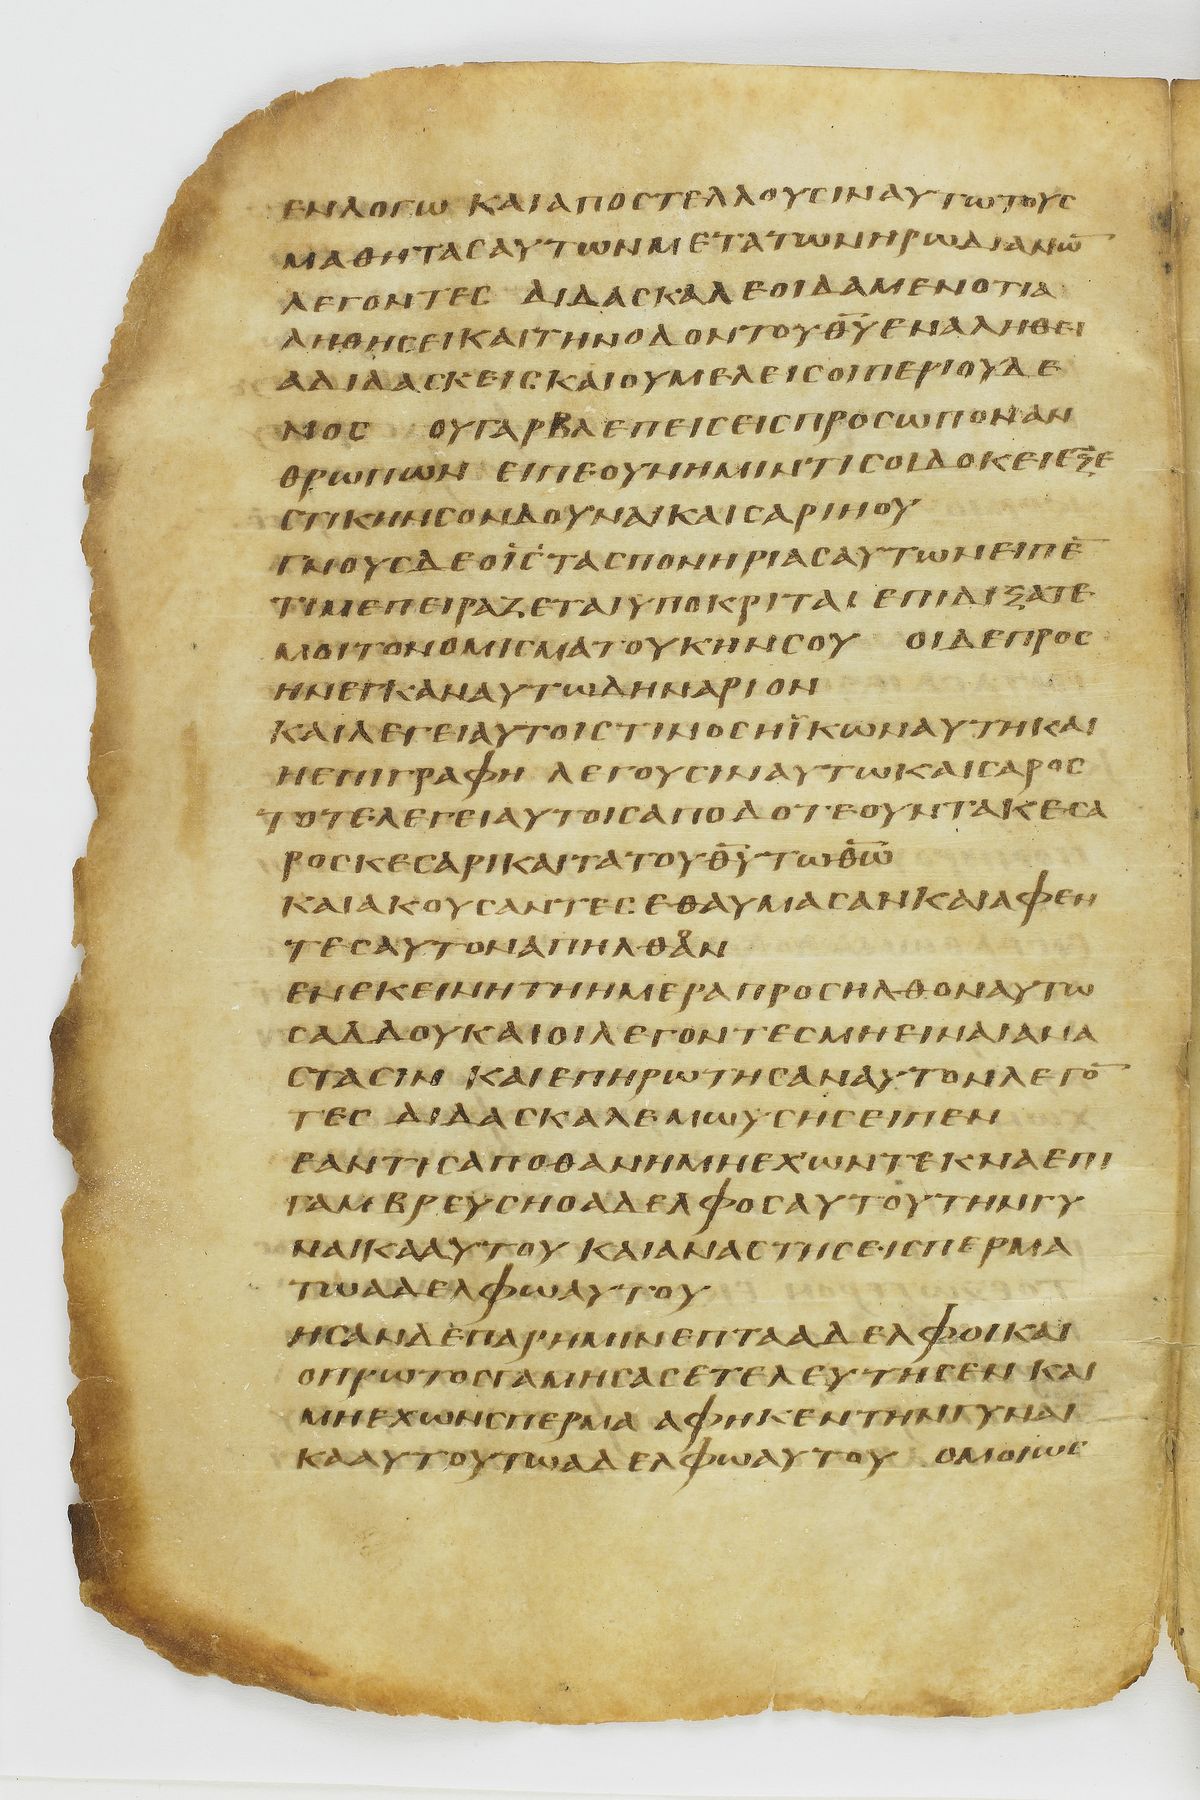 ΕΝΛΟΓΩ ΚΑΙΑΠΟΣΤΕΛΛΟΥΣΙΝΑΥΤΩΤΟΥΣ
ΜΑΘΗΤΑΣΑΥΤΩΝΜΕΤΑΤΩΝΗΡΩΔΙΑΝΩ̅
ΛΕΓΟΝΤΕΣ ΔΙΔΑΣΚΑΛΕΟΙΔΑΜΕΝΟΤΙΑ
ΛΗΘΗΣΕΙΚΑΙΤΗΝΟΔΟΝΤΟΥΘ̅Υ̅ΕΝΑΛΗΘΕΙ
ΑΔΙΔΑΣΚΕΙΣΚΑΙΟΥΜΕΛΕΙΣΟΙΠΕΡΙΟΥΔΕ
ΝΟΣ ΟΥΓΑΡΒΛΕΠΕΙΣΕΙΣΠΡΟΣΩΠΟΝΑΝ
ΘΡΩΠΩΝ ΕΙΠΕΟΥΝΗΜΙΝΤΙΣΟΙΔΟΚΕΙΕΞΕ
ΣΤΙΚΗΝΣΟΝΔΟΥΝΑΙΚΑΙΣΑΡΙΗΟΥ
ΓΝΟΥΣΔΕΟΙ̅Σ̅ΤΑΣΠΟΝΗΡΙΑΣΑΥΤΩΝΕΙΠΕ̅
ΤΙΜΕΠΕΙΡΑΖΕΤΑΙΥΠΟΚΡΙΤΑΙ ΕΠΙΔΙΞΑΤΕ
ΜΟΙΤΟΝΟΜΙΣΜΑΤΟΥΚΗΝΣΟΥ ΟΙΔΕΠΡΟΣ
ΗΝΕΓΚΑΝΑΥΤΩΔΗΝΑΡΙΟΝ
ΚΑΙΛΕΓΕΙΑΥΤΟΙΣΤΙΝΟΣΗΪΚΩΝΑΥΤΗΚΑΙ
ΗΕΠΙΓΡΑΦΗ ΛΕΓΟΥΣΙΝΑΥΤΩΚΑΙΣΑΡΟΣ
ΤΟΤΕΛΕΓΕΙΑΥΤΟΙΣΑΠΟΔΟΤΕΟΥΝΤΑΚΕΣΑ
ΡΟΣΚΕΣΑΡΙΚΑΙΤΑΤΟΥΘ̅Υ̅ΤΩΘ̅Ω̅
ΚΑΙΑΚΟΥΣΑΝΤΕΣΕΘΑΥΜΑΣΑΝΚΑΙΑΦΕΝ
ΤΕΣΑΥΤΟΝΑΠΗΛΘΑΝ
ΕΝΕΚΕΙΝΗΤΗΗΜΕΡΑΠΡΟΣΗΛΘΟΝΑΥΤΩ
ΣΑΔΔΟΥΚΑΙΟΙΛΕΓΟΝΤΕΣΜΗΕΙΝΑΙΑΝΑ
ΣΤΑΣΙΝ ΚΑΙΕΠΗΡΩΤΗΣΑΝΑΥΤΟΝΛΕΓΟ̅
ΤΕΣ ΔΙΔΑΣΚΑΛΕΜΩΥΣΗΣΕΙΠΕΝ
ΕΑΝΤΙΣΑΠΟΘΑΝΗΜΗΕΧΩΝΤΕΚΝΑΕΠΙ
ΓΑΜΒΡΕΥΣΗΟΑΔΕΛΦΟΣΑΥΤΟΥΤΗΝΓΥ
ΝΑΙΚΑΑΥΤΟΥ ΚΑΙΑΝΑΣΤΗΣΕΙΣΠΕΡΜΑ
ΤΩΑΔΕΛΦΩΑΥΤΟΥ
ΗΣΑΝΔΕΠΑΡΗΜΙΝΕΠΤΑΑΔΕΛΦΟΙΚΑΙ
ΟΠΡΩΤΟΣΓΑΜΗΣΑΣΕΤΕΛΕΥΤΗΣΕΝΚΑΙ
ΜΗΕΧΩΝΣΠΕΡΜΑ ΑΦΗΚΕΝΤΗΝΓΥΝΑΙ
ΚΑΑΥΤΟΥΤΩΑΔΕΛΦΩΑΥΤΟΥ ΟΜΟΙΩΣ